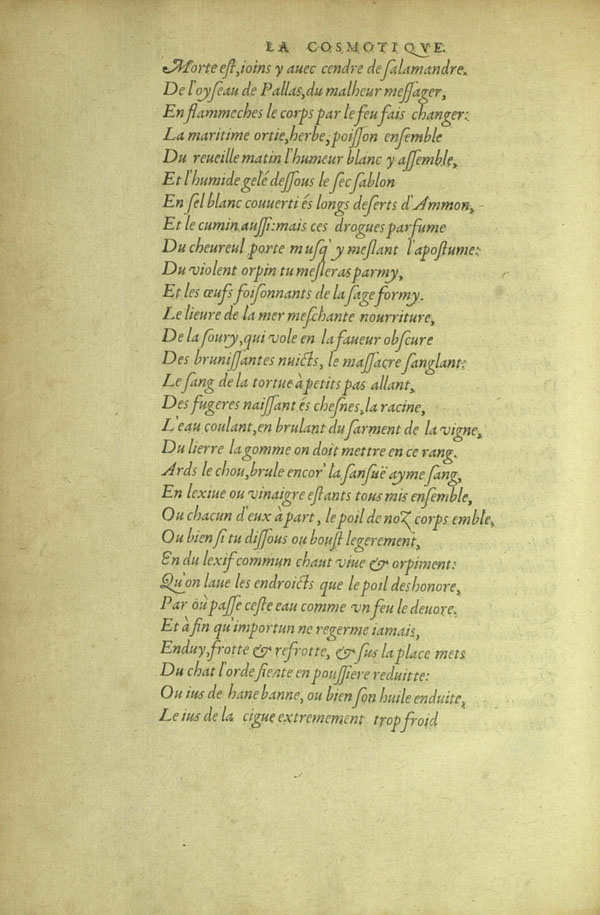 LA COSMOTIQVE.
Morte eſt, ioins y auec cendre de ſalamandre.
De l'oyſeau de Pallas, du malheur meſſager,
En flammeches le corps par le feu fais changer:
La maritime ortie, herbe, poiſſon enſemble
Du reueille matin l'humeur blanc y aſſemble,
Et l'humide gelé deſſous le ſec ſablon
En ſel blanc couuerti és longs deſerts d'Ammon,
Et le cumin auſſi: mais ces drogues parfume
Du cheureul porte muſq' y meſlant l'apoſtume:
Du violent orpin tu meſleras parmy,
Et les œufs foiſonnants de la ſage formy.
Le lieure de la mer meſchante nourriture,
De la ſoury, qui vole en la faueur obſcure
Des bruniſſantes nuicts, le maſſacre ſanglant:
Le ſang de la tortue à petits pas allant,
Des fugeres naiſſant és cheſnes, la racine,
L'eau coulant, en brulant du ſarment de la vigne,
Du lierre la gomme on doit mettre en ce rang.
Ards le chou, brule encor' la ſanſuë ayme ſang,
En lexiue ou vinaigre eſtants tous mis enſemble,
Ou chacun d'eux à part, le poil de noz corps emble,
Ou bien ſi tu diſſous ou bouſt legerement,
En du lexif commun chaut viue & orpiment:
Qu'on laue les endroicts que le poil deshonore,
Par où paſſe ceſte eau comme vn feu le deuore.
Et à fin qu'importun ne regerme iamais,
Enduy, frotte & refrotte, & ſus la place mets
Du chat l'orde fiente en pouſſiere reduitte:
Ou ius de hanebanne, ou bien ſon huile enduite,
Le ius de la cigue extremement trop froid